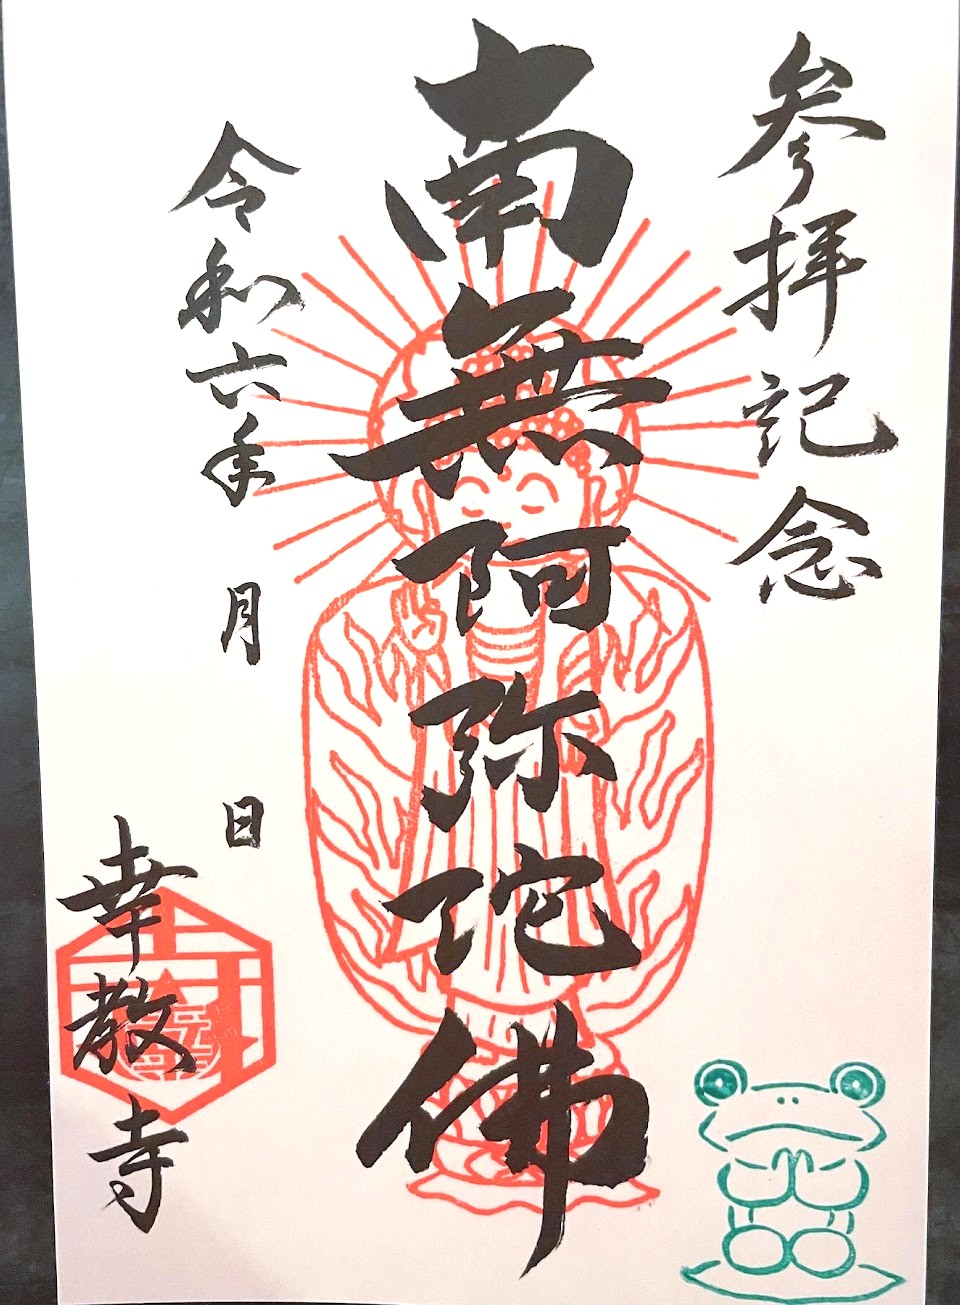 参拝記念
南無阿弥陀佛
令和六年 月 日
幸教寺